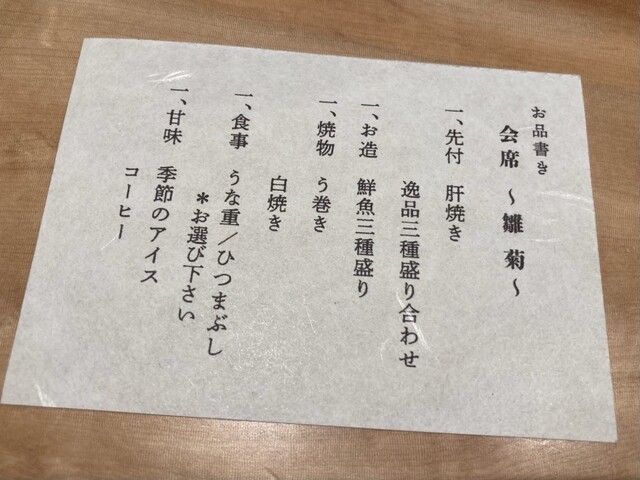 お品書き
会席 ～雛菊～
一、先付 肝焼き
逸品三種盛り合わせ
一、お造 鮮魚三種盛り
一、焼物 う巻き
白焼き
一、食事 うな重／ひつまぶし
＊お選び下さい
一、甘味 季節のアイス
コーヒー